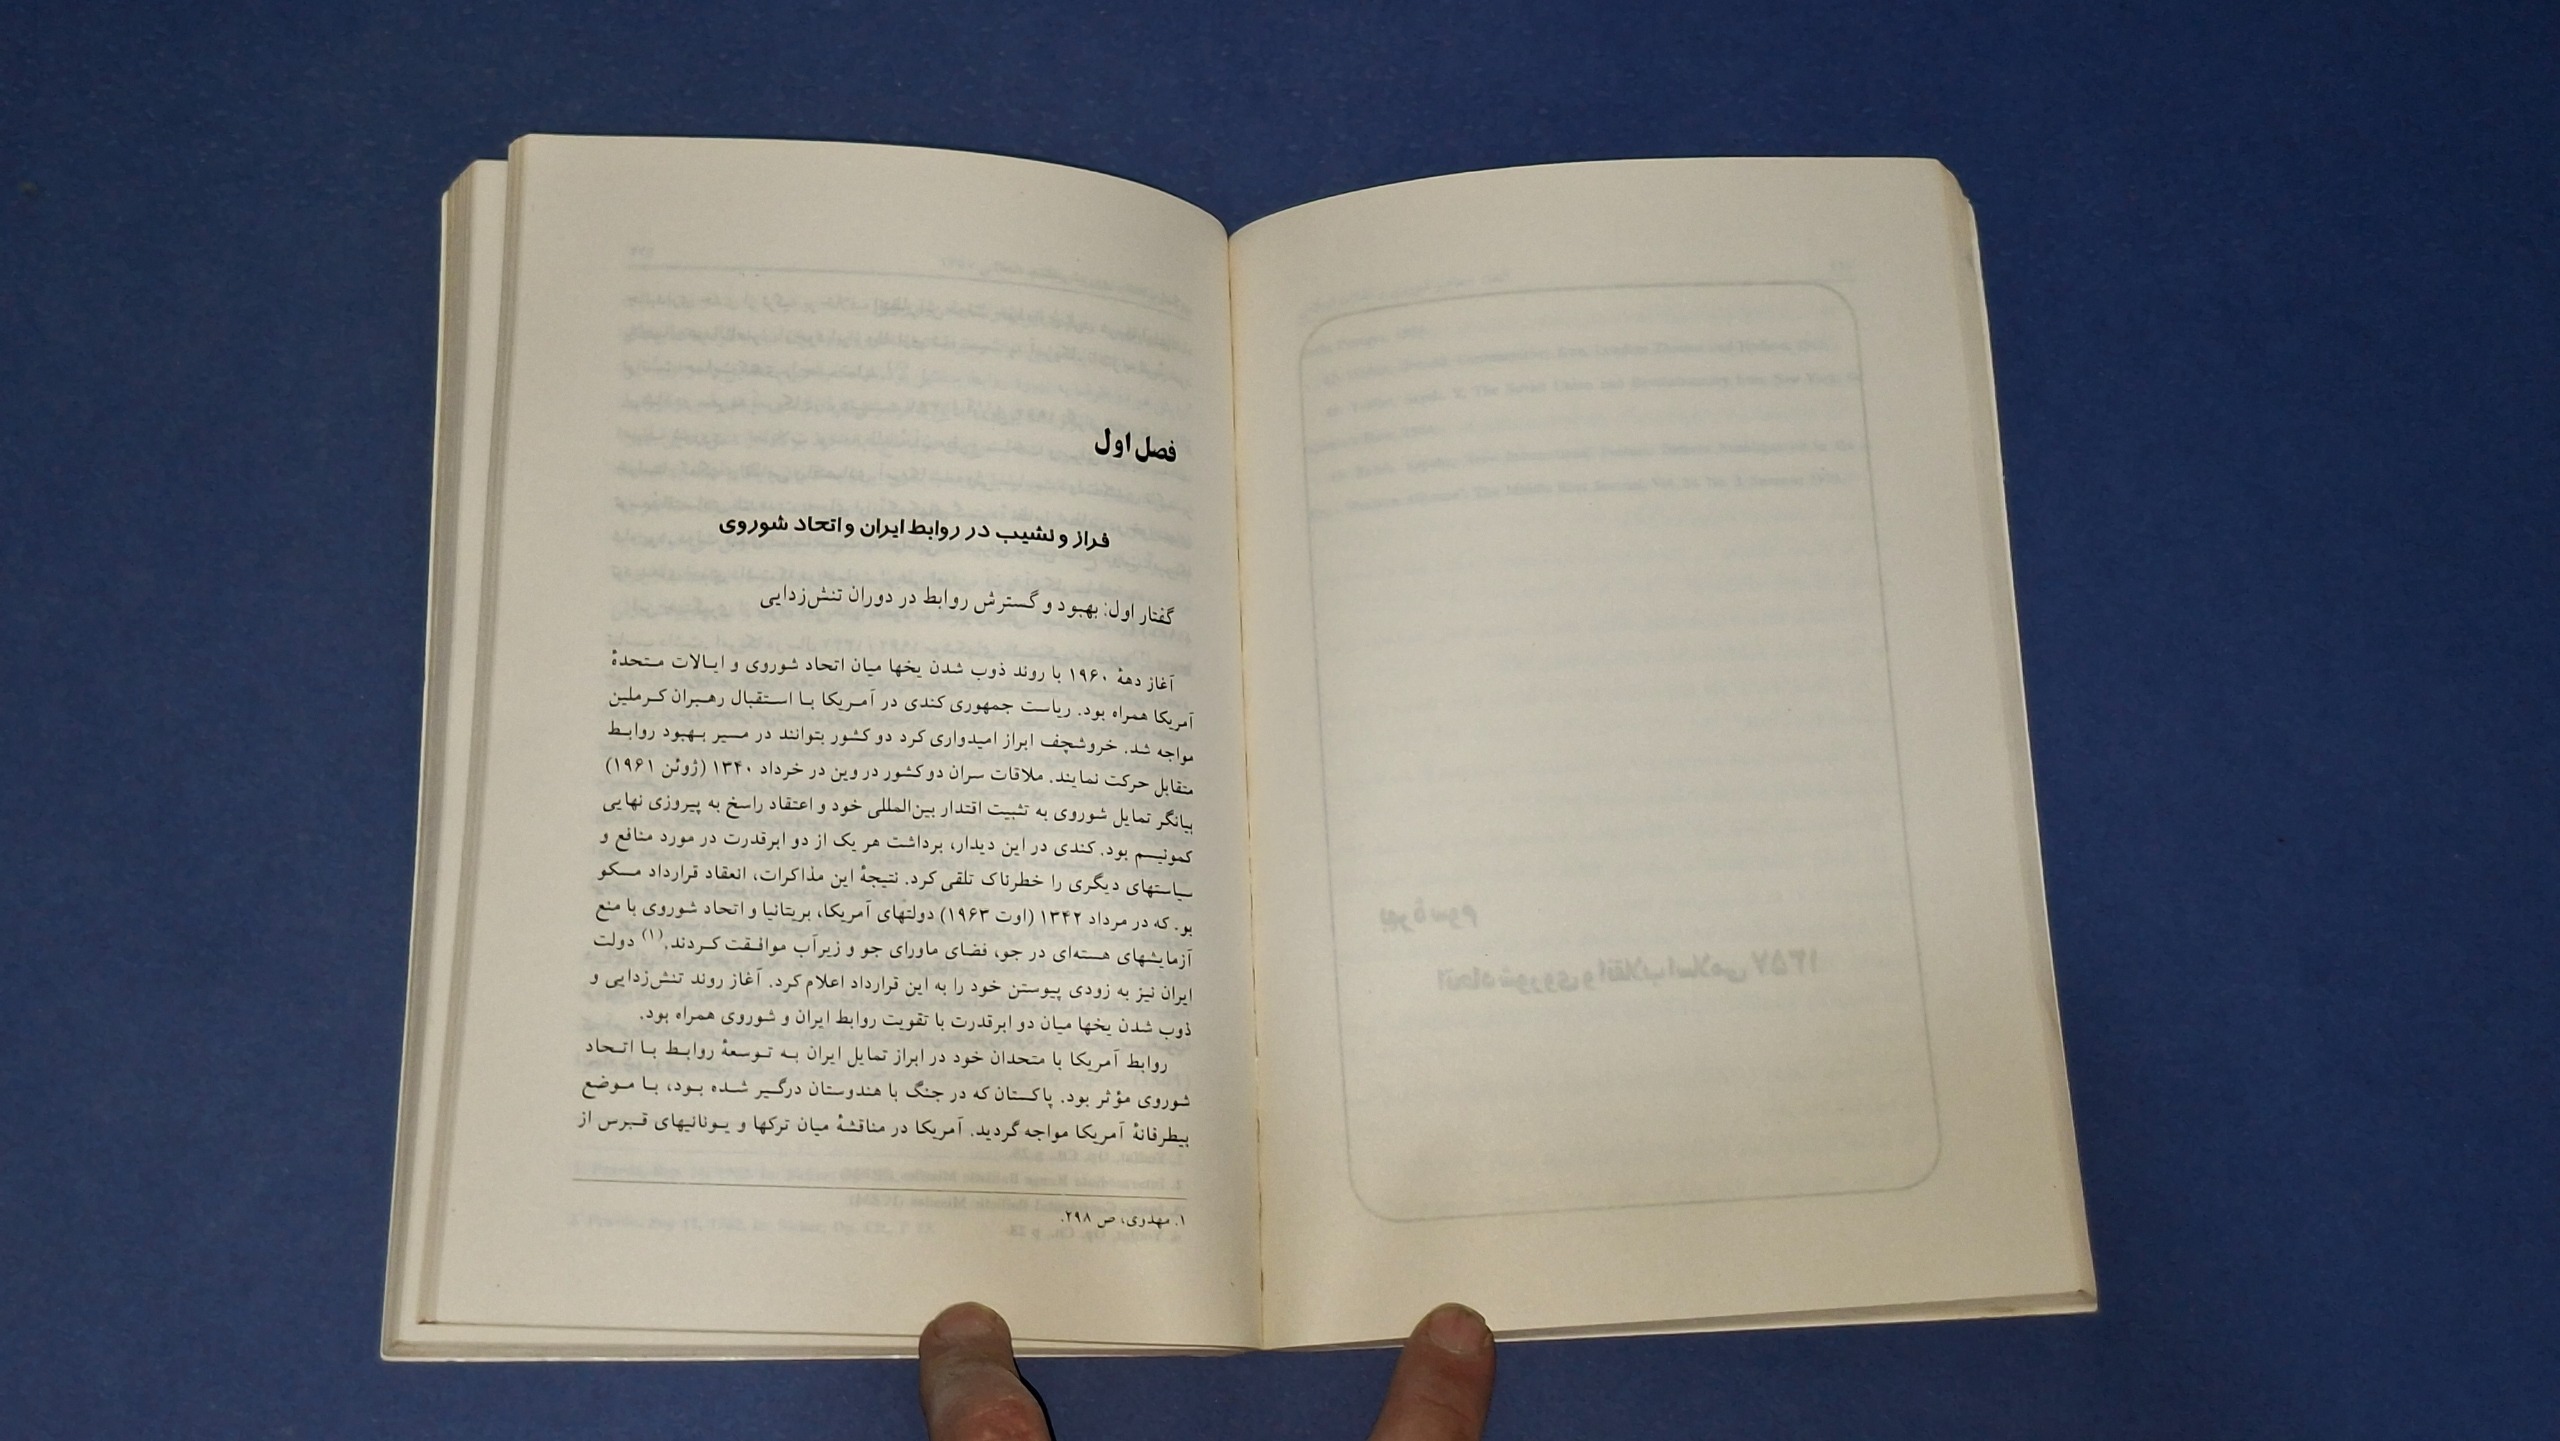 فصل اول
فراز و نشیب در روابط ایران و اتحاد شوروی
گفتار اول: بهبود و گسترش روابط در دوران تنش‌زدایی
آغاز دههٔ ۱۹۶۰ با روند ذوب شدن یخها میان اتحاد شوروی و ایالات متحدهٔ
آمریکا همراه بود. ریاست جمهوری کندی در آمریکا با استقبال رهبران کرملین
مواجه شد. خروشچف ابراز امیدواری کرد دو کشور بتوانند در مسیر بهبود روابط
متقابل حرکت نمایند. ملاقات سران دو کشور در وین در خرداد ۱۳۴۰ (ژوئن ۱۹۶۱)
بیانگر تمایل شوروی به تثبیت اقتدار بین‌المللی خود و اعتقاد راسخ به پیروزی نهایی
کمونیسم بود. کندی در این دیدار، برداشت هر یک از دو ابرقدرت در مورد منافع و
سیاستهای دیگری را خطرناک تلقی کرد. نتیجهٔ این مذاکرات، انعقاد قرارداد مسکو
بو. که در مرداد ۱۳۴۲ (اوت ۱۹۶۳) دولتهای آمریکا، بریتانیا و اتحاد شوروی با منع
آزمایشهای هسته‌ای در جو، فضای ماورای جو و زیرآب موافقت کردند.(۱) دولت
ایران نیز به زودی پیوستن خود را به این قرارداد اعلام کرد. آغاز روند تنش‌زدایی و
ذوب شدن یخها میان دو ابرقدرت با تقویت روابط ایران و شوروی همراه بود.
روابط آمریکا با متحدان خود در ابراز تمایل ایران به توسعهٔ روابط با اتحاد
شوروی مؤثر بود. پاکستان که در جنگ با هندوستان درگیر شده بود، با موضع
بیطرفانهٔ آمریکا مواجه گردید. آمریکا در مناقشهٔ میان ترکها و یونانیهای قبرس از
۱. مهدوی، ص ۲۹۸.